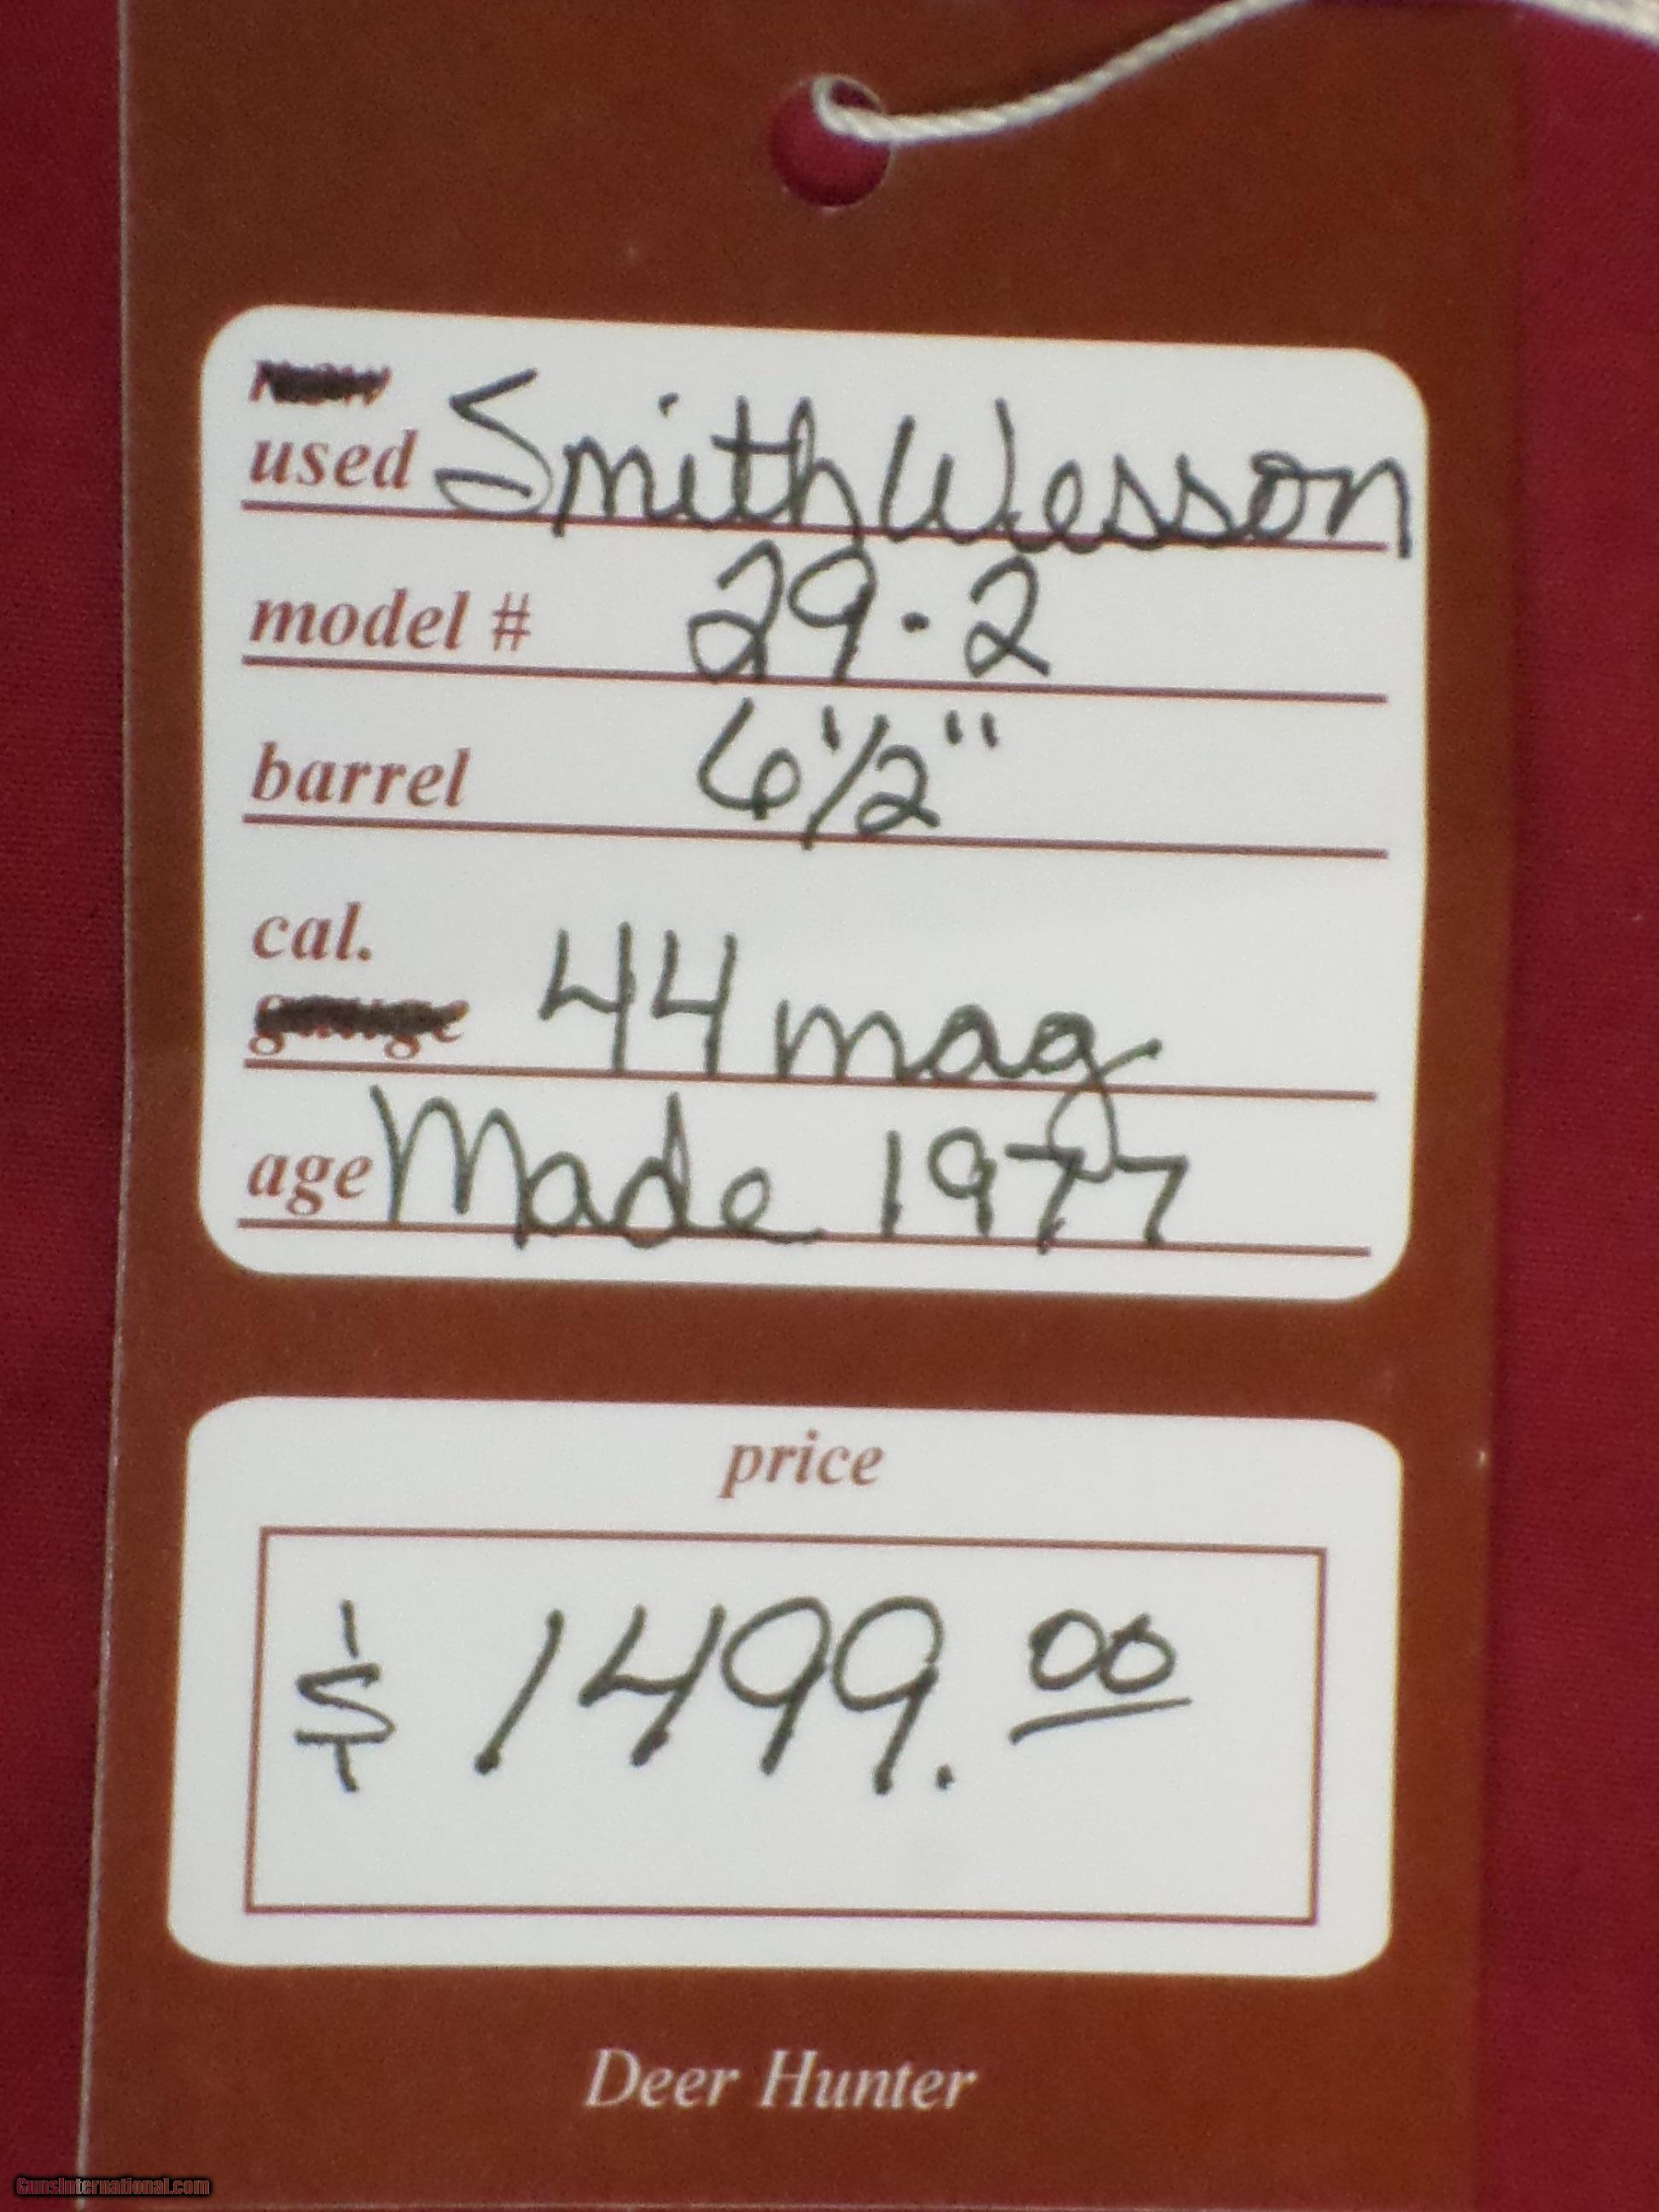 new
used Smith Wesson
model # 29-2
barrel 6 1/2"
cal.
gauge 44 mag
age Made 1977
price
$ 1499.00
Deer Hunter
GunsInternational.com